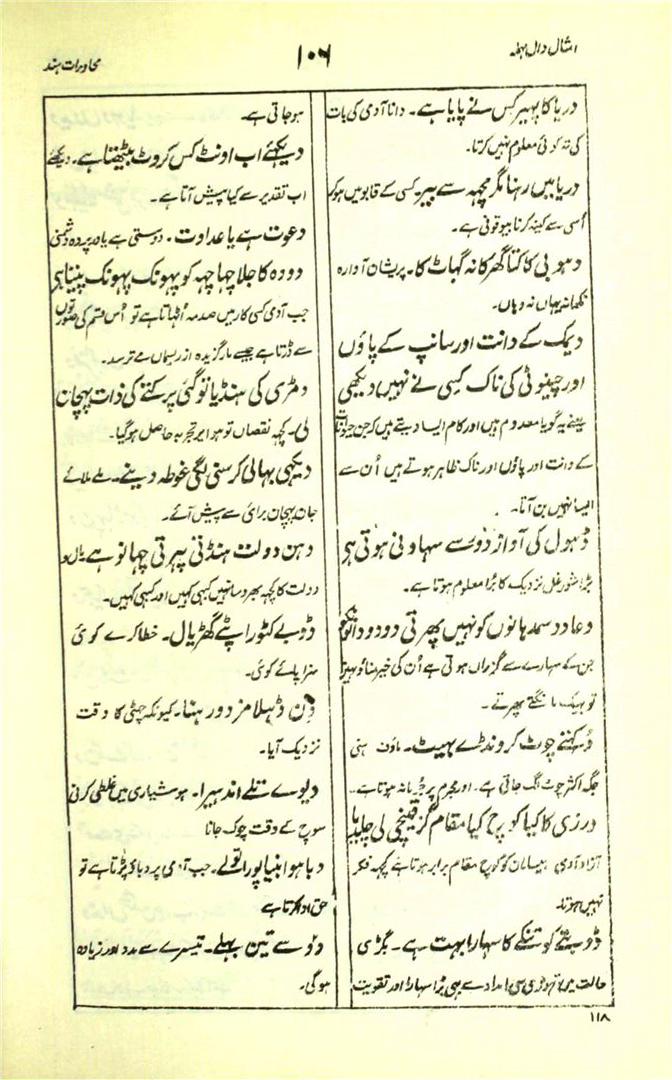 امثال دال مہملہ
۱۰۶
محاورات ہند
دریا کا پہیر کس نے پایا ہے۔ دانا آدمی کی بات
کی تہ کوئی معلوم نہیں کرتا۔
دریا میں رہنا مگر مچہہ سے بیر کسی کے قابو میں ہوکر
اُسی سے کینہ کرنا بیوقوفی ہے۔
دہوبی کا کتا گھر کا نہ گہاٹ کا۔ پریشان آوارہ
نکما نہ یہاں نہ وہاں۔
دیمک کے دانت اور سانپ کے پاؤں
اور چینوٹی کی ناک کسی نے نہیں دیکھی
یعنے یہ گویا معدوم ہیں اور کام ایسا دیتے ہیں کہ جن حیوانات
کے دانت اور پاؤں اور ناک ظاہر ہوتے ہیں اُن سے
ایسا نہیں بن آتا۔
ڈہول کی آواز دور سے سہاونی ہوتی ہے
بڑا شور غل نزدیک کا بُرا معلوم ہوتا ہے۔
دعا دو سمدہانوں کو نہیں پھرتی دو دو دانونکو
جن کے سہارے سے گزراں ہوتی ہے اُن کی خیر مناؤ نہیں
تو بہیک مانگتے پھرتے۔
دُکہتے چوٹ کروندے بہیٹ۔ ماؤف ہی
جگہ اکثر چوٹ لگ جاتی ہے۔ اور مجرم پر جُرمانہ ہوتا ہے۔
درزی کا کیا کوچ کیا مقام گز قینچی لی چلدیا
آزاد آدمی بیسامان کو کوچ مقام برابر ہوتا ہے کچہہ فکر
نہیں ہوتا۔
ڈوبتے کو تنکے کا سہارا بہت ہے۔ بگڑی
حالت میں تہوڑی سی امداد سے بہی بڑا سہارا اور تقویت
ہو جاتی ہے۔
دیکہئے اب اونٹ کس کروٹ بیٹھتا ہے۔ دیکہئے
اب تقدیر سے کیا پیش آتا ہے۔
دعوت ہے یا عداوت۔ دوستی ہے یا در پردہ دشمنی
دودہ کا جلا چہاچہہ کو پہونک پہونک پیتا ہے
جب آدمی کسی کار میں صدمہ اُٹہاتا ہے تو اُس قسم کی صورتوں
سے ڈرتا ہے جیسے مار گزیدہ از ریسماں مے ترسد۔
دمڑی کی ہنڈیا تو گئی پر کتے کی ذات پہچان
لی۔ کچہہ نقصاں تو ہوا پر تجربہ حاصل ہوگیا۔
دیکہی بہالی کرسنی لگی غوطہ دینے۔ ملے ملائے
جان پہچان برائی سے پیش آئے۔
دہن دولت ہنڈنی پہرتی چہانو ہے۔ مال و
دولت کا کچہہ بھروسا نہیں کبہی کہیں اور کبہی کہیں۔
ڈوبے کٹورا پٹے گھڑیال۔ خطا کرے کوئی
سزا پائے کوئی۔
دن ڈہلا مزدور ہنسا۔ کیونکہ چہٹی کا وقت
نزدیک آیا۔
دیوے تلے اندہیرا۔ ہوشیاری میں غلطی کرنی
سوچ کے وقت چوک جانا
دبا ہوا بنیا پورا تولے۔ جب آدمی پر دباؤ پڑتا ہے تو
حق ادا کرتا ہے
دو سے تین بہلے۔ تیسرے سے مدد اور زیادہ
ہوگی۔
۱۱۸